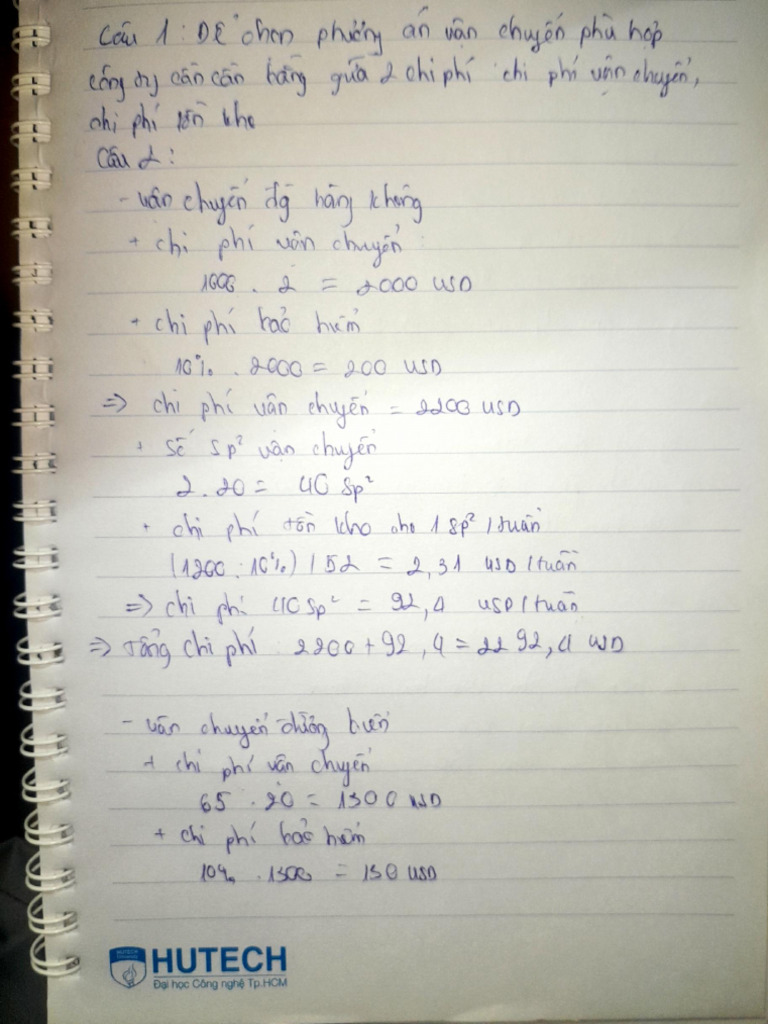 Câu 1: Để chọn phương án vận chuyển phù hợp
công ty cần cân bằng giữa 2 chi phí: chi phí vận chuyển,
chi phí tồn kho
Câu 2:
- vận chuyển đg hàng không
+ chi phí vận chuyển:
1000 . 2 = 2000 USD
+ chi phí bảo hiểm
10% . 2000 = 200 USD
=> chi phí vận chuyển = 2200 USD
+ số sp² vận chuyển
2.20 = 40 sp²
+ chi phí tồn kho cho 1 sp² / tuần
(1200 . 10%) / 52 = 2,31 USD / tuần
=> chi phí 40 sp² = 92,4 USD / tuần
=> Tổng chi phí 2200 + 92,4 = 2292,4 USD
- vận chuyển đường biển
+ chi phí vận chuyển
65 . 20 = 1300 USD
+ chi phí bảo hiểm
10% . 1300 = 130 USD
HUTECH
Đại học Công nghệ Tp.HCM